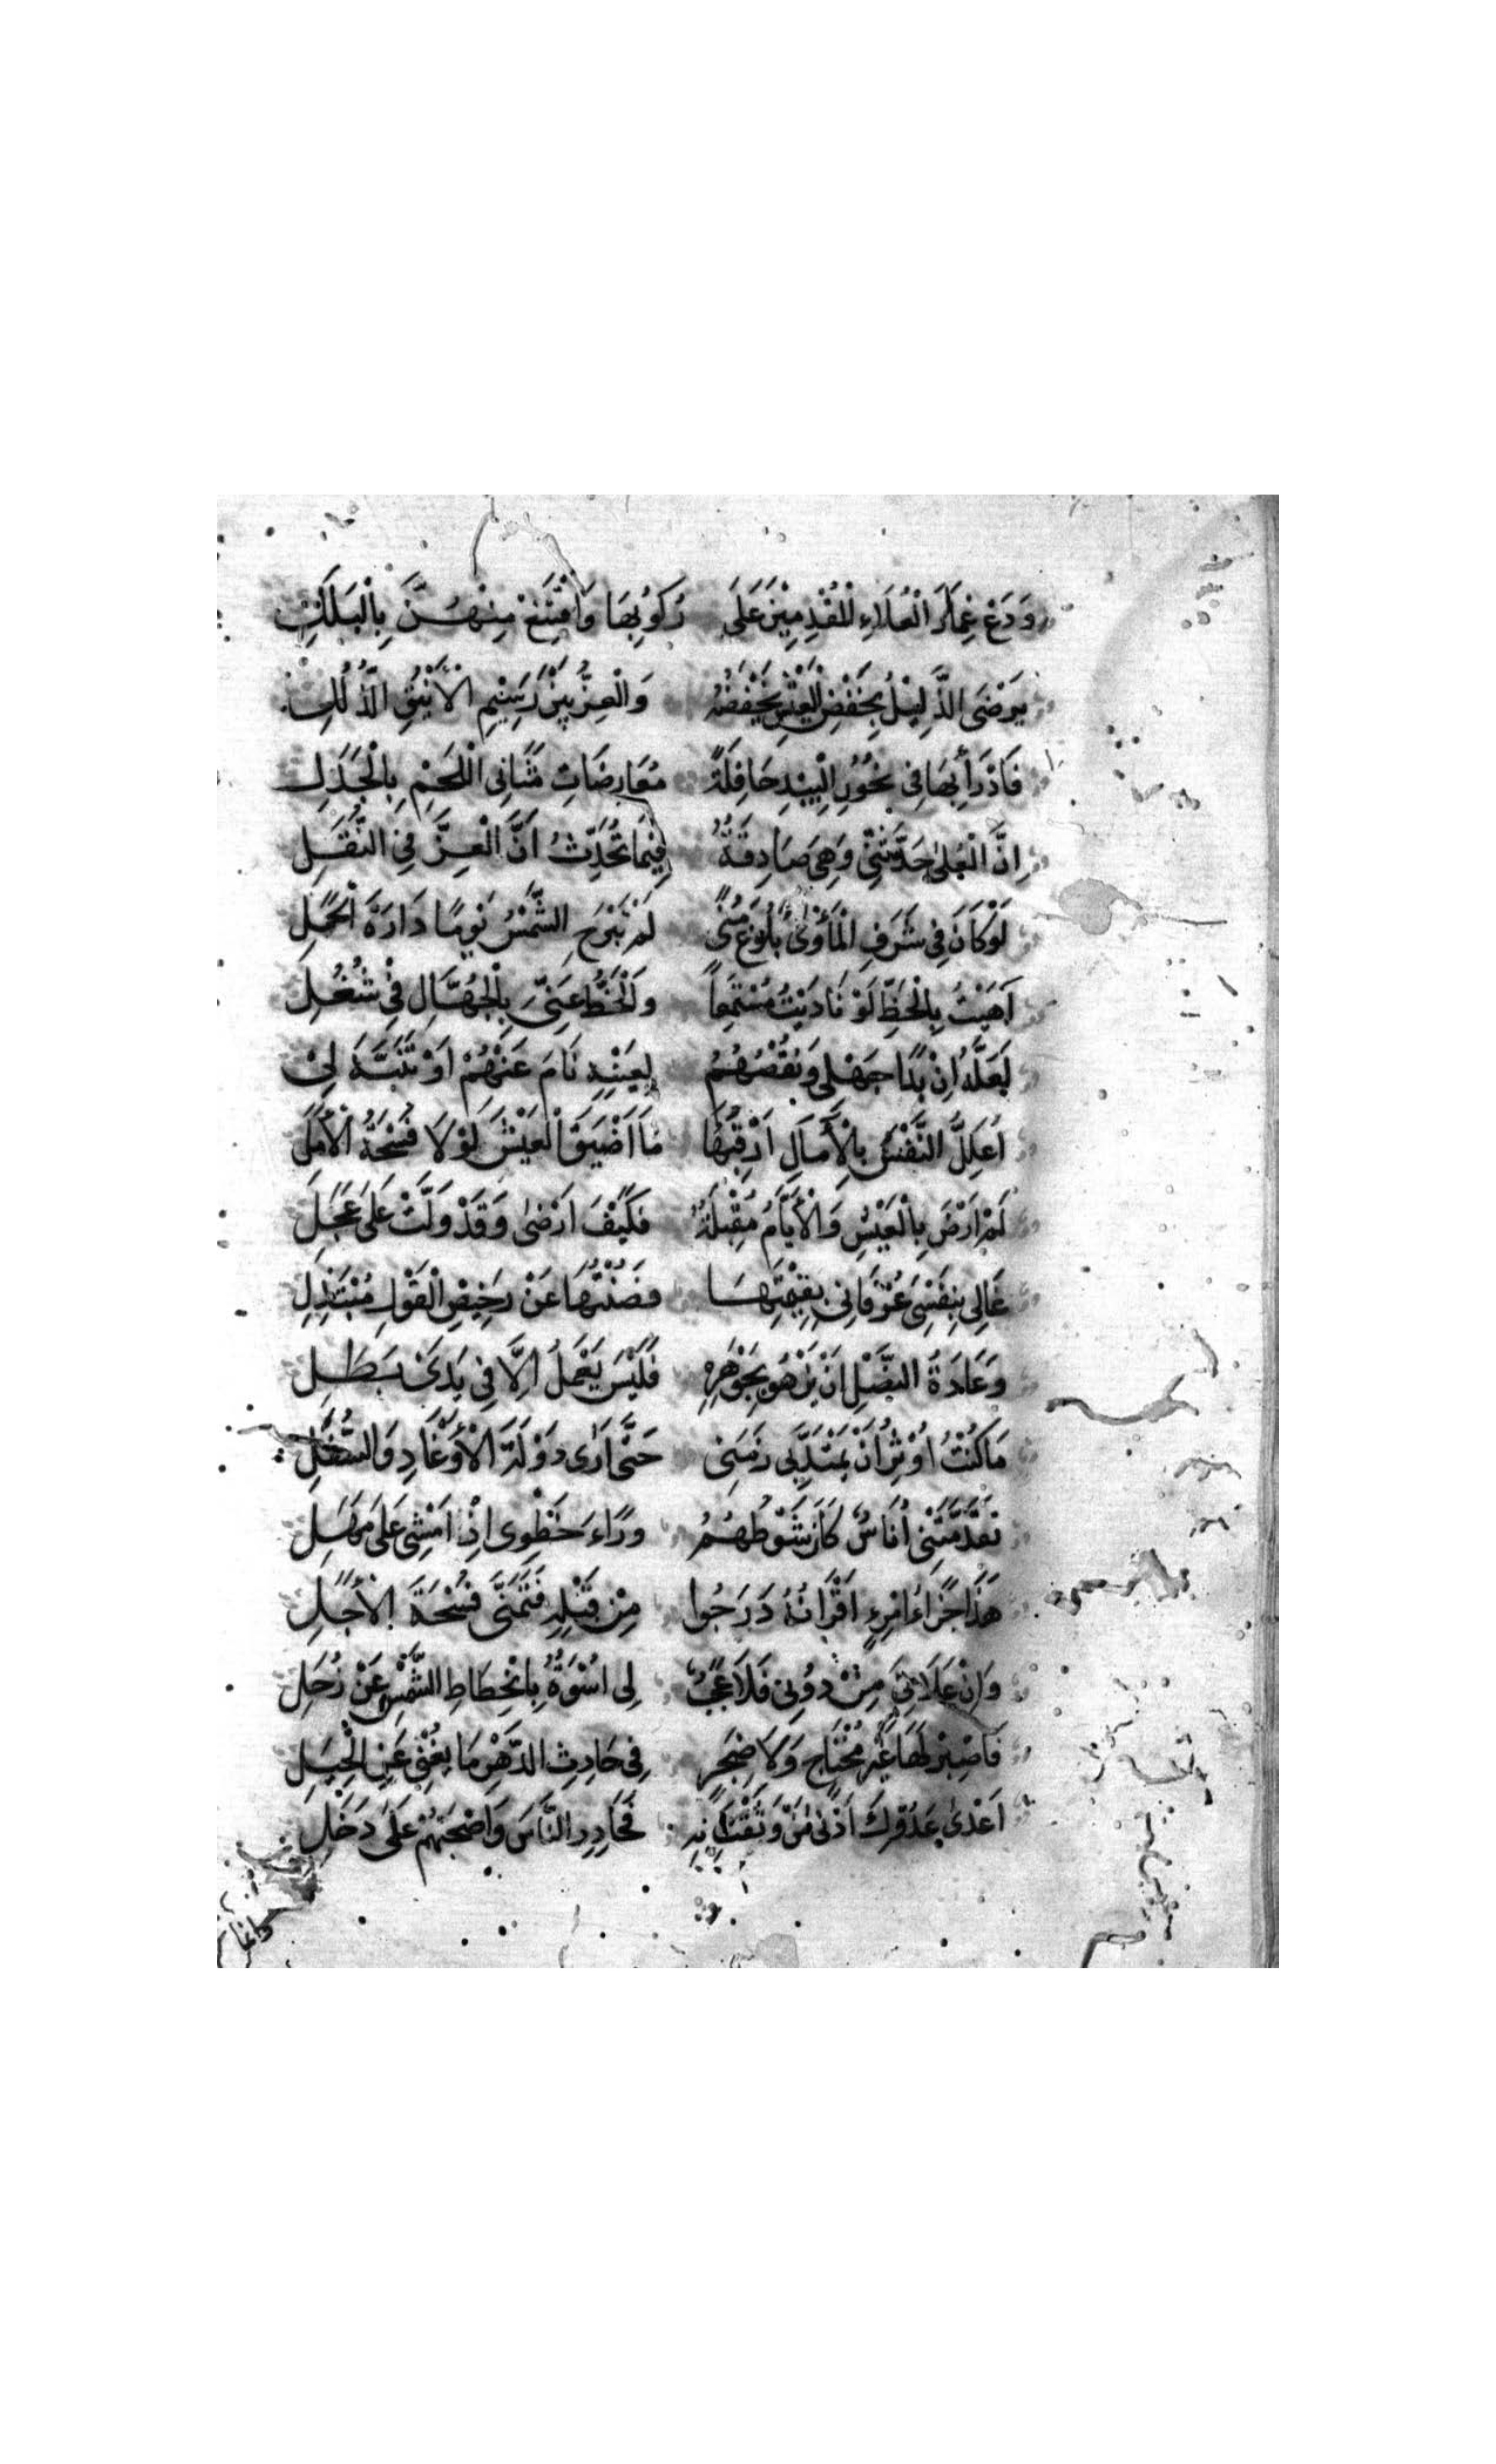 وَدَعْ غِمَارَ الْعُلَاءِ لِلْمُقْدِمِيْنَ عَلَى رُكُوْبِهَا وَاقْتَنِعْ مِنْهُنَّ بِالْبَلَلِ
يَرْضَى الذَّلِيْلُ بِخَفْضِ الْعَيْشِ يَخْفِضُهُ وَالْعِزُّ بَيْنَ رَسِيْمِ الْأَيْنُقِ الذُّلُلِ
فَادْرَأْ بِهَا فِى نُحُوْرِ الْبِيْدِ جَافِلَةً مُعَارِضَاتِ مَثَانِى اللُّجُمِ بِالْجُدُلِ
اِنَّ الْعُلٰى حَدَّثَتْنِىْ وَهِىَ صَادِقَةٌ فِيْمَا تُحَدِّثُ اَنَّ الْعِزَّ فِى النُّقَلِ
لَوْ كَانَ فِى شَرَفِ الْمَأْوٰى بُلُوْغُ مُنًى لَمْ تَبْرَحِ الشَّمْسُ يَوْمًا دَارَةَ الْحَمَلِ
اَهَبْتُ بِالْحَظِّ لَوْ نَادَيْتُ مُسْتَمِعًا وَالْحَظُّ عَنِّىَ بِالْجُهَّالِ فِىْ شُغُلِ
لَعَلَّهُ اِنْ بَدَا جَهْلِى وَنَقْصُهُمُ لِعَيْنِهِ نَامَ عَنْهُمْ اَوْ تَنَبَّهَ لِىْ
اُعَلِّلُ النَّفْسَ بِالْاٰمَالِ اَرْقُبُهَا مَا اَضْيَقَ الْعَيْشَ لَوْلَا فُسْحَةُ الْاَمَلِ
لَمْ اَرْضَ بِالْعَيْشِ وَالْاَيَّامُ مُقْبِلَةٌ فَكَيْفَ اَرْضٰى وَقَدْ وَلَّتْ عَلٰى عَجَلِ
غَالِى بِنَفْسِىَ عِرْفَانِى بِقِيْمَتِهَا فَصُنْتُهَا عَنْ رَخِيْصِ الْقَوْلِ مُبْتَذَلِ
وَعَادَةُ النَّصْلِ اَنْ يَزْهُو بِجَوْهَرِهِ فَلَيْسَ يَعْمَلُ اِلَّا فِى يَدَىْ بَطَلِ
مَا كُنْتُ اُوْثِرُ اَنْ يَمْتَدَّ بِى زَمَنِى حَتّٰى اَرٰى دَوْلَةَ الْاَوْغَادِ وَالسُّفَلِ
تَقَدَّمَتْنِى اُنَاسٌ كَانَ شَوْطُهُمُ وَرَاءَ خَطْوِى اِذْ اَمْشِى عَلٰى مَهَلِ
هٰذَا جَزَاءُ امْرِءٍ اَقْرَانُهُ دَرَجُوا مِنْ قَبْلِهِ فَتَمَنّٰى فُسْحَةَ الْاَجَلِ
وَاِنْ عَلَانِىَ مَنْ دُوْنِى فَلَا عَجَبٌ لِى اُسْوَةٌ بِانْحِطَاطِ الشَّمْسِ عَنْ زُحَلِ
فَاصْبِرْ لَهَا غَيْرَ مُحْتَاجٍ وَلَا ضَجِرٍ فِى حَادِثِ الدَّهْرِ مَا يُغْنِى عَنِ الْحِيَلِ
اَعْدٰى عَدُوِّكَ اَدْنٰى مَنْ وَثِقْتَ بِهِ فَحَاذِرِ النَّاسَ وَاصْحَبْهُمْ عَلٰى دَخَلِ